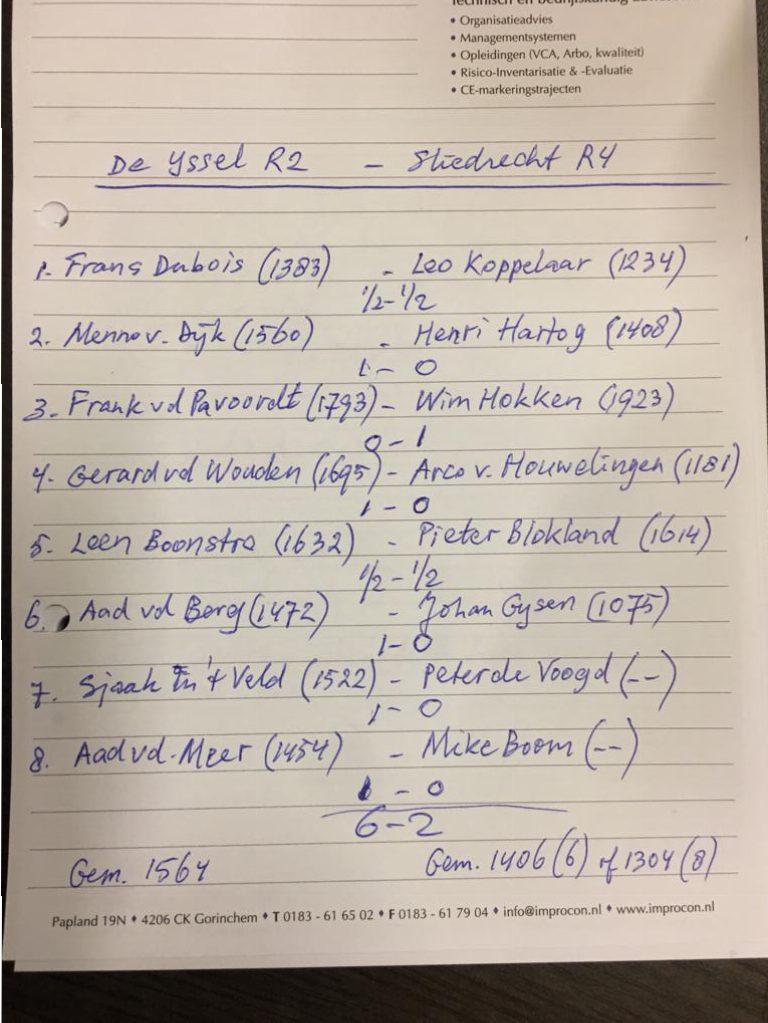 • Organisatieadvies
• Managementsystemen
• Opleidingen (VCA, Arbo, kwaliteit)
• Risico-Inventarisatie & -Evaluatie
• CE-markeringstrajecten
De Yssel R2 - Sliedrecht R4
1. Frans Dubois (1383) - Leo Koppelaar (1234)
1/2-1/2
2. Menno v. Dijk (1560) - Henri Hartog (1408)
1-0
3. Frank vd Pavoordt (1793) - Wim Hokken (1923)
0-1
4. Gerard vd Wouden (1695) - Arco v. Houwelingen (1181)
1-0
5. Leen Boonstra (1632) - Pieter Blokland (1614)
1/2-1/2
6. Aad vd Berg (1472) - Johan Gysen (1075)
1-0
7. Sjaak in 't Veld (1522) - Peter de Voogd (--)
1-0
8. Aad vd. Meer (1454) - Mike Boom (--)
1-0
6-2
Gem. 1564 Gem. 1406 (6) of 1304 (8)
Papland 19N • 4206 CK Gorinchem • T 0183 - 61 65 02 • F 0183 - 61 79 04 • info@improcon.nl • www.improcon.nl